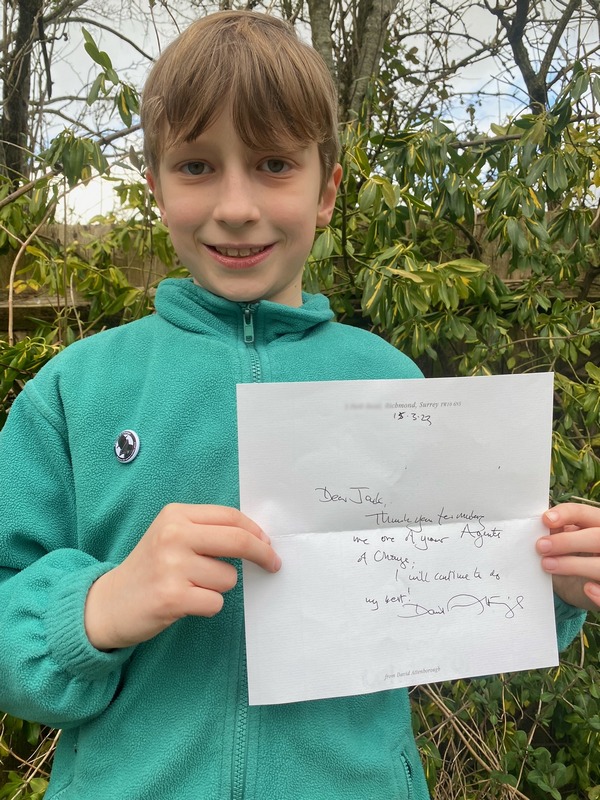 Richmond, Surrey
15.3.23
Dear Jack,
Thank you for making
me one of your Agents
of Change.
I will continue to do
my best!
David
from David Attenborough